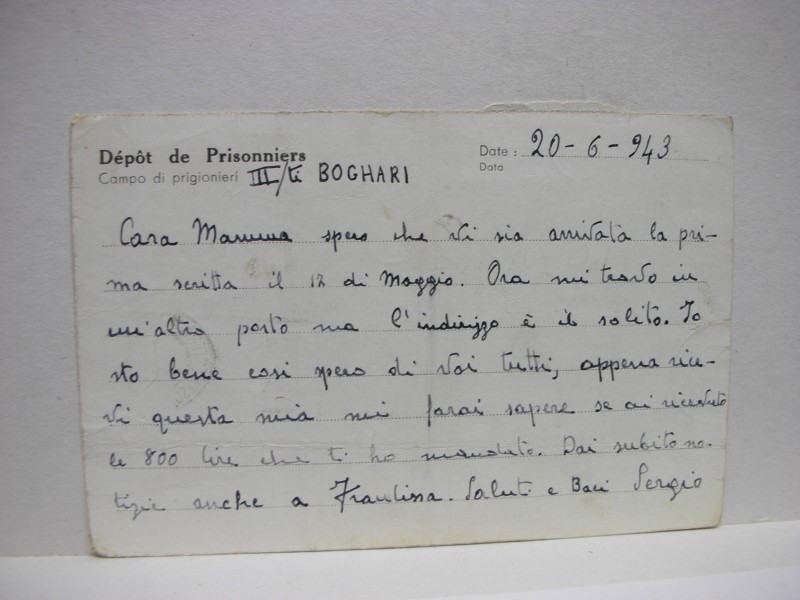 Dépôt de Prisonniers
Campo di prigionieri III/ti BOGHARI
Date : 20-6-943
Data
Cara Mamma spero che vi sia arrivata la pri-
ma scritta il 12 di Maggio. Ora mi trovo in
un'altro posto ma l'indirizzo è il solito. Io
sto bene così spero di voi tutti, appena rice-
vi questa mia mi farai sapere se ai ricevuto
le 800 lire che ti ho mandato. Dai subito no-
tizie anche a Saluti e Baci Sergio